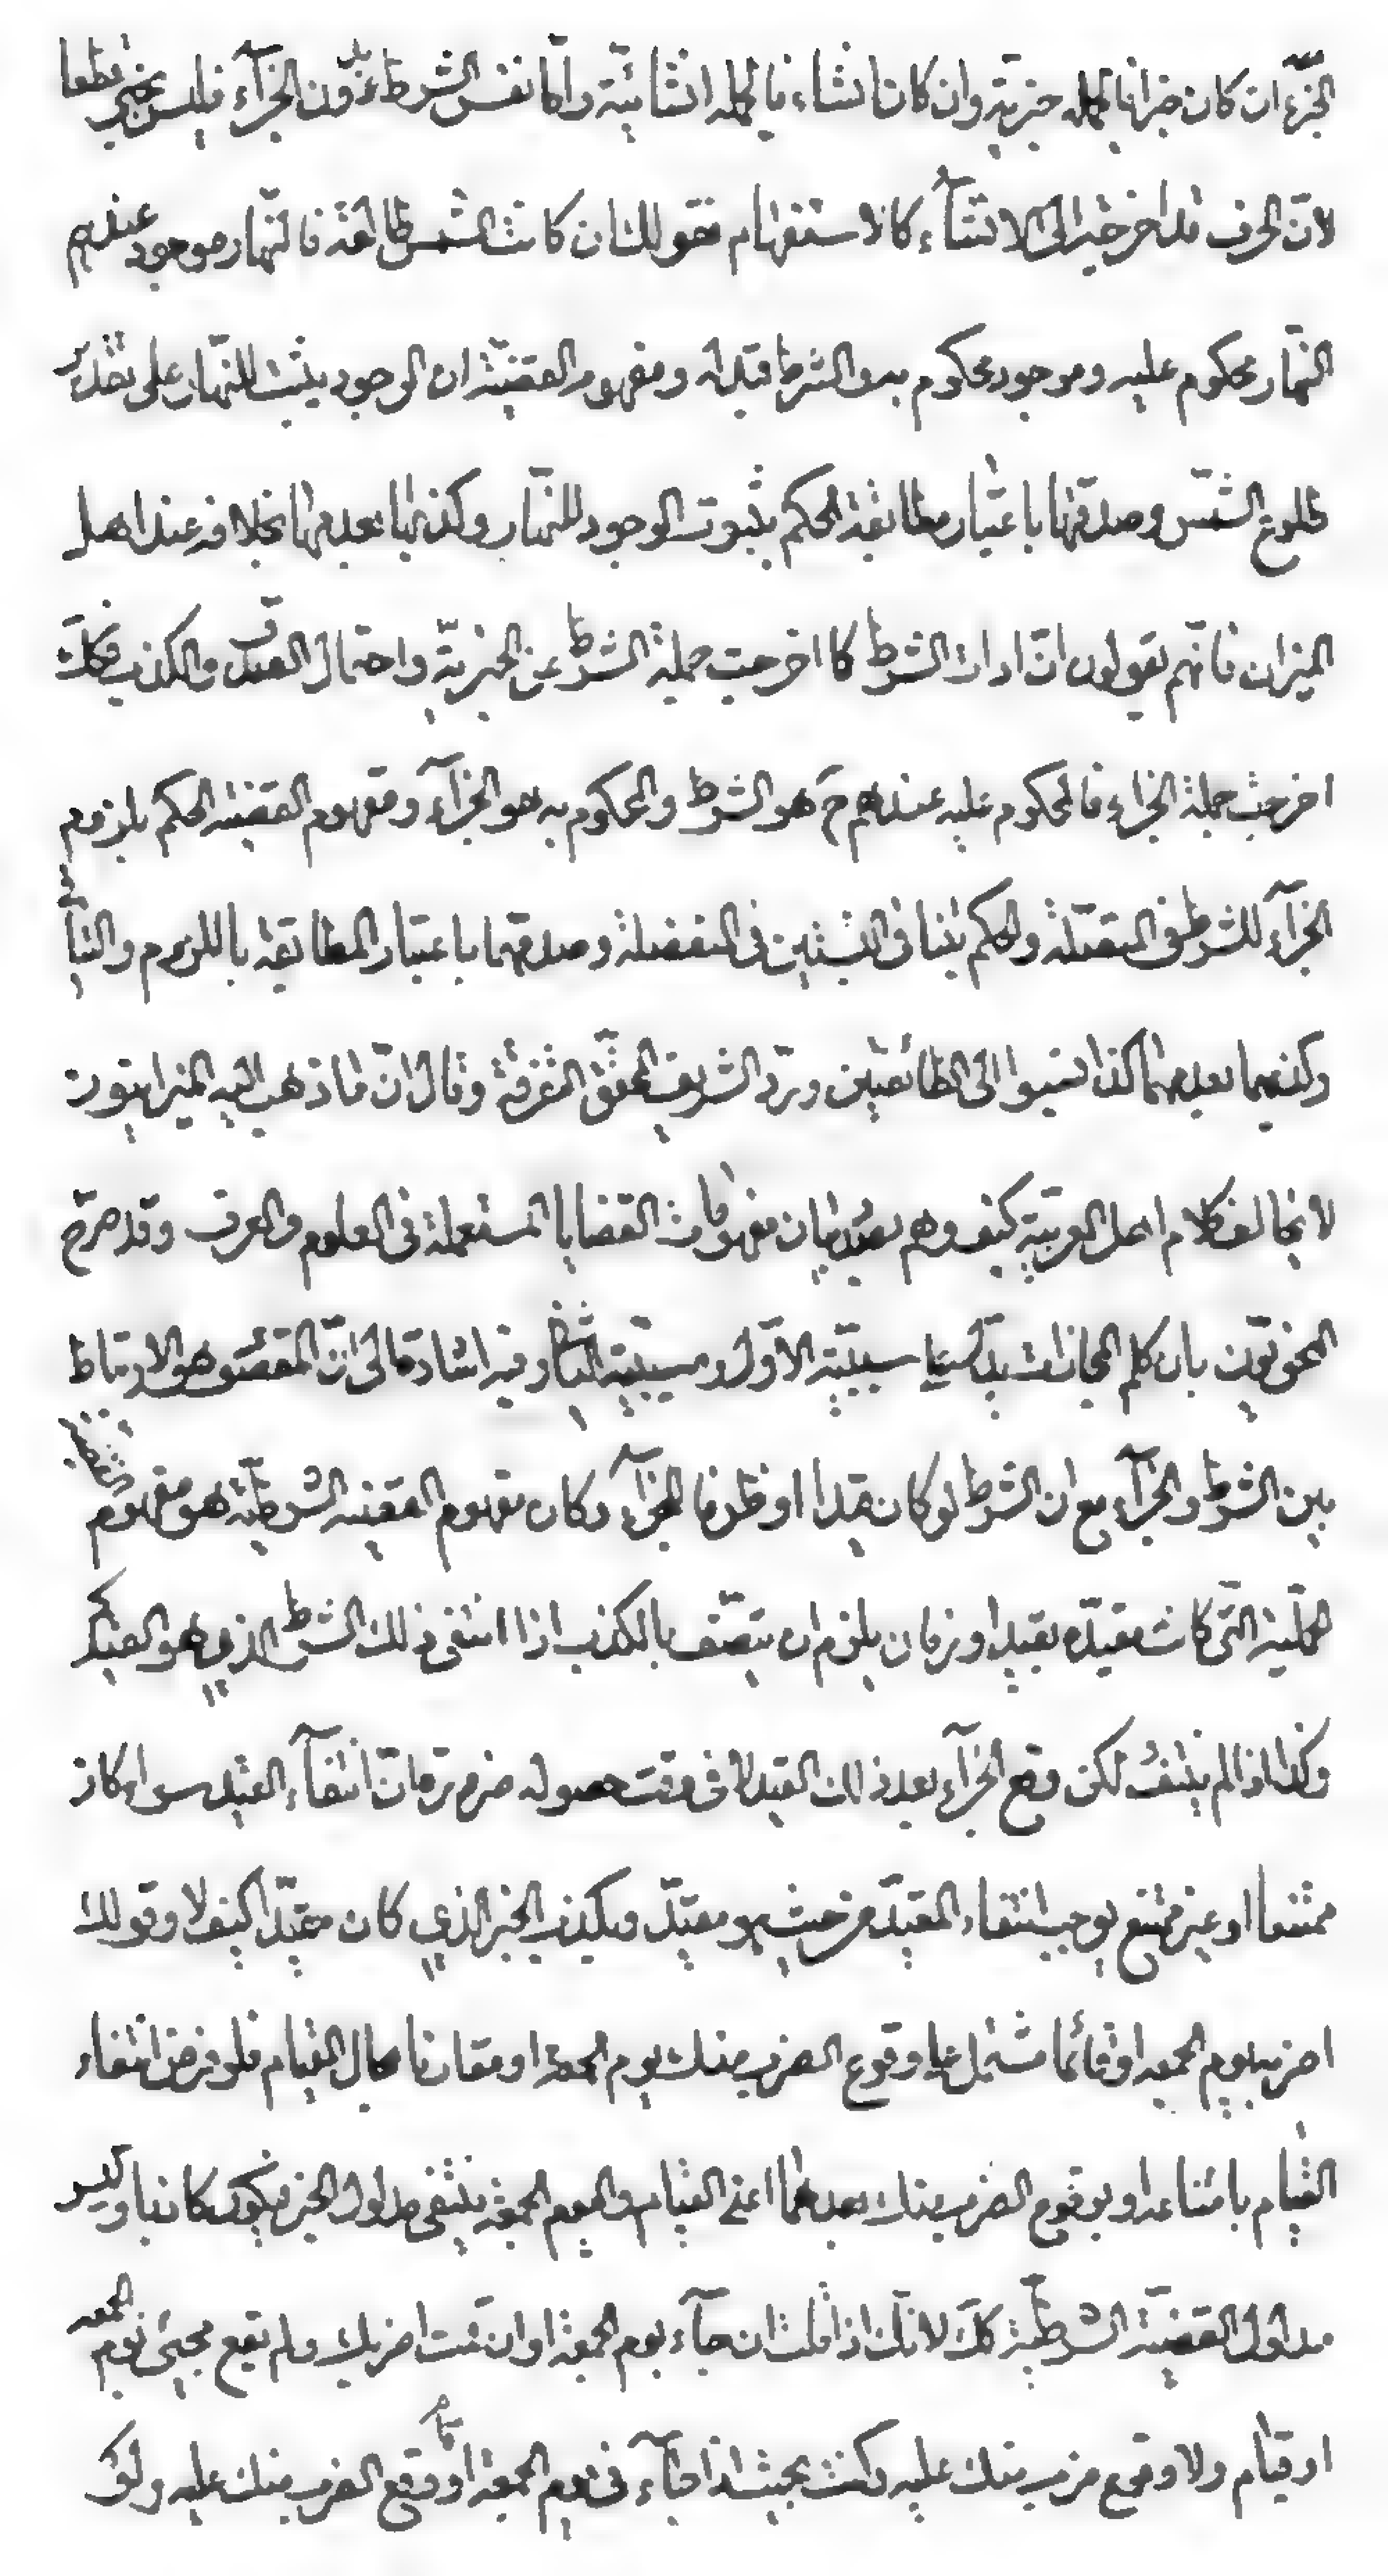 الجزاء ان كان خبرا فالجملة خبرية وان كان انشاء فالجملة انشائية واما نفس الشرط بدون الجزاء فليس بخبر قطعا
لان الحرف قد اخرجته الى الانشاء كالاستفهام فقولك ان كانت الشمس طالعة فالنهار موجود عندهم
النهار محكوم عليه وموجود محكوم به والشرط قيد له ومفهوم القضية ان الوجود يثبت للنهار على تقدير
طلوع الشمس وصدقها باعتبار مطابقة الحكم بثبوت الوجود للنهار وكذبها بعدمها بخلافه عند اهل
الميزان فانهم يقولون ان ادات الشرط كما اخرجت جملة الشرط عن الخبرية واحتمال الصدق والكذب فكك
اخرجت جملة الجزاء فالمحكوم عليه عندهم ح هو الشرط والمحكوم به هو الجزاء ومفهوم القضية الحكم بلزوم
الجزاء للشرط في المتصلة والحكم بتنافي النسبتين في المنفصلة وصدقهما باعتبار المطابقة باللزوم والتنافي
وكذبهما بعدمهما كذا نسبوا الى الطائفتين ورد الشريف المحقق التفرقة وقال ان ما ذهب اليه الميزانيون
لا يخالف كلام اهل العربية كيف وهم بصدد بيان مفهومات القضايا المستعملة في العلوم والعرف وقد صرح
النحويون بان كلم المجازات تدل على سببية الاول ومسببية الثاني وفيه اشارة الى ان المقصود هو الارتباط
بين الشرط والجزاء مع ان الشرط لو كان قيدا او ظرفا للجزاء وكان مفهوم القضية الشرطية هو مفهوم القضية
الحملية التي كانت مقيدة بقيد او زمان يلزم ان يتصف بالكذب اذا انتفى ذلك الشرط الذي هو القيد
وكذا اذا لم ينتف لكن وقع الجزاء بعد ذلك القيد لا في وقت حصوله ضرورة ان انتفاء القيد سواء كان
ممتنعا او غير ممتنع يوجب انتفاء المقيد من حيث هو مقيد ويكذب الخبر الذي كان مقيدا كيف لا وقولك
اضرب يوم الجمعة او قائما مشتمل على وقوع الضرب منك يوم الجمعة او مقارنا بحال القيام فلو فرض انتفاء
القيام بامتناعه او بوقوع الضرب منك بعدهما اعني القيام واليوم الجمعة ينتفي مدلول الخبر فيكون كاذبا وليس
مدلول القضية الشرطية كك لانك اذا قلت ان جاء يوم الجمعة او ان قمت اضربك ولم يقع مجيئ يوم الجمعة
او قيام ولا وقع ضرب منك عليه وكنت بحيث اذا جاء في يوم الجمعة او قام وقع الضرب منك عليه